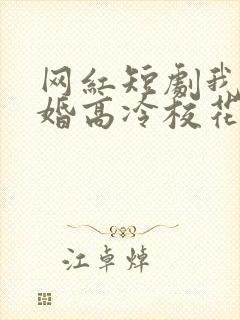 网红短剧我
婚高冷校花
江卓焯